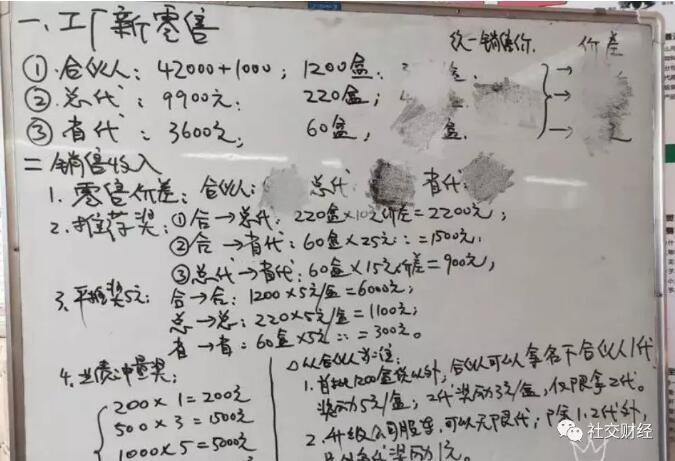 一、工厂新零售
统一销售价. 价差
① 合伙人: 42000+1000; 1200盒.
② 总代: 9900元. 220盒;
③ 省代: 3600元; 60盒, 盒.
二 销售收入
1. 零售价差: 合伙人: 总代: 省代:
2. 推荐奖: ①合→总代: 220盒×10元价差=2200元;
②合→省代: 60盒×25元 =1500元.
③总代→省代: 60盒×15元价差=900元,
3. 平推奖5元: 合→合: 1200×5元/盒=6000元;
总→总: 220×5元/盒=1100元;
省→省: 60盒×5元 =300元。
4. 业绩冲量奖:
200×1=200元
500×3=1500元
1000×5=5000元
从合伙人
1. 首批1200盒货以外, 合伙人可以拿名下合伙人1代
奖励5元/盒; 2代奖励3元/盒, 仅限拿2代。
2. 升级公司股东, 可以无限代; 除1.2代外,
奖励1元。
社交财经